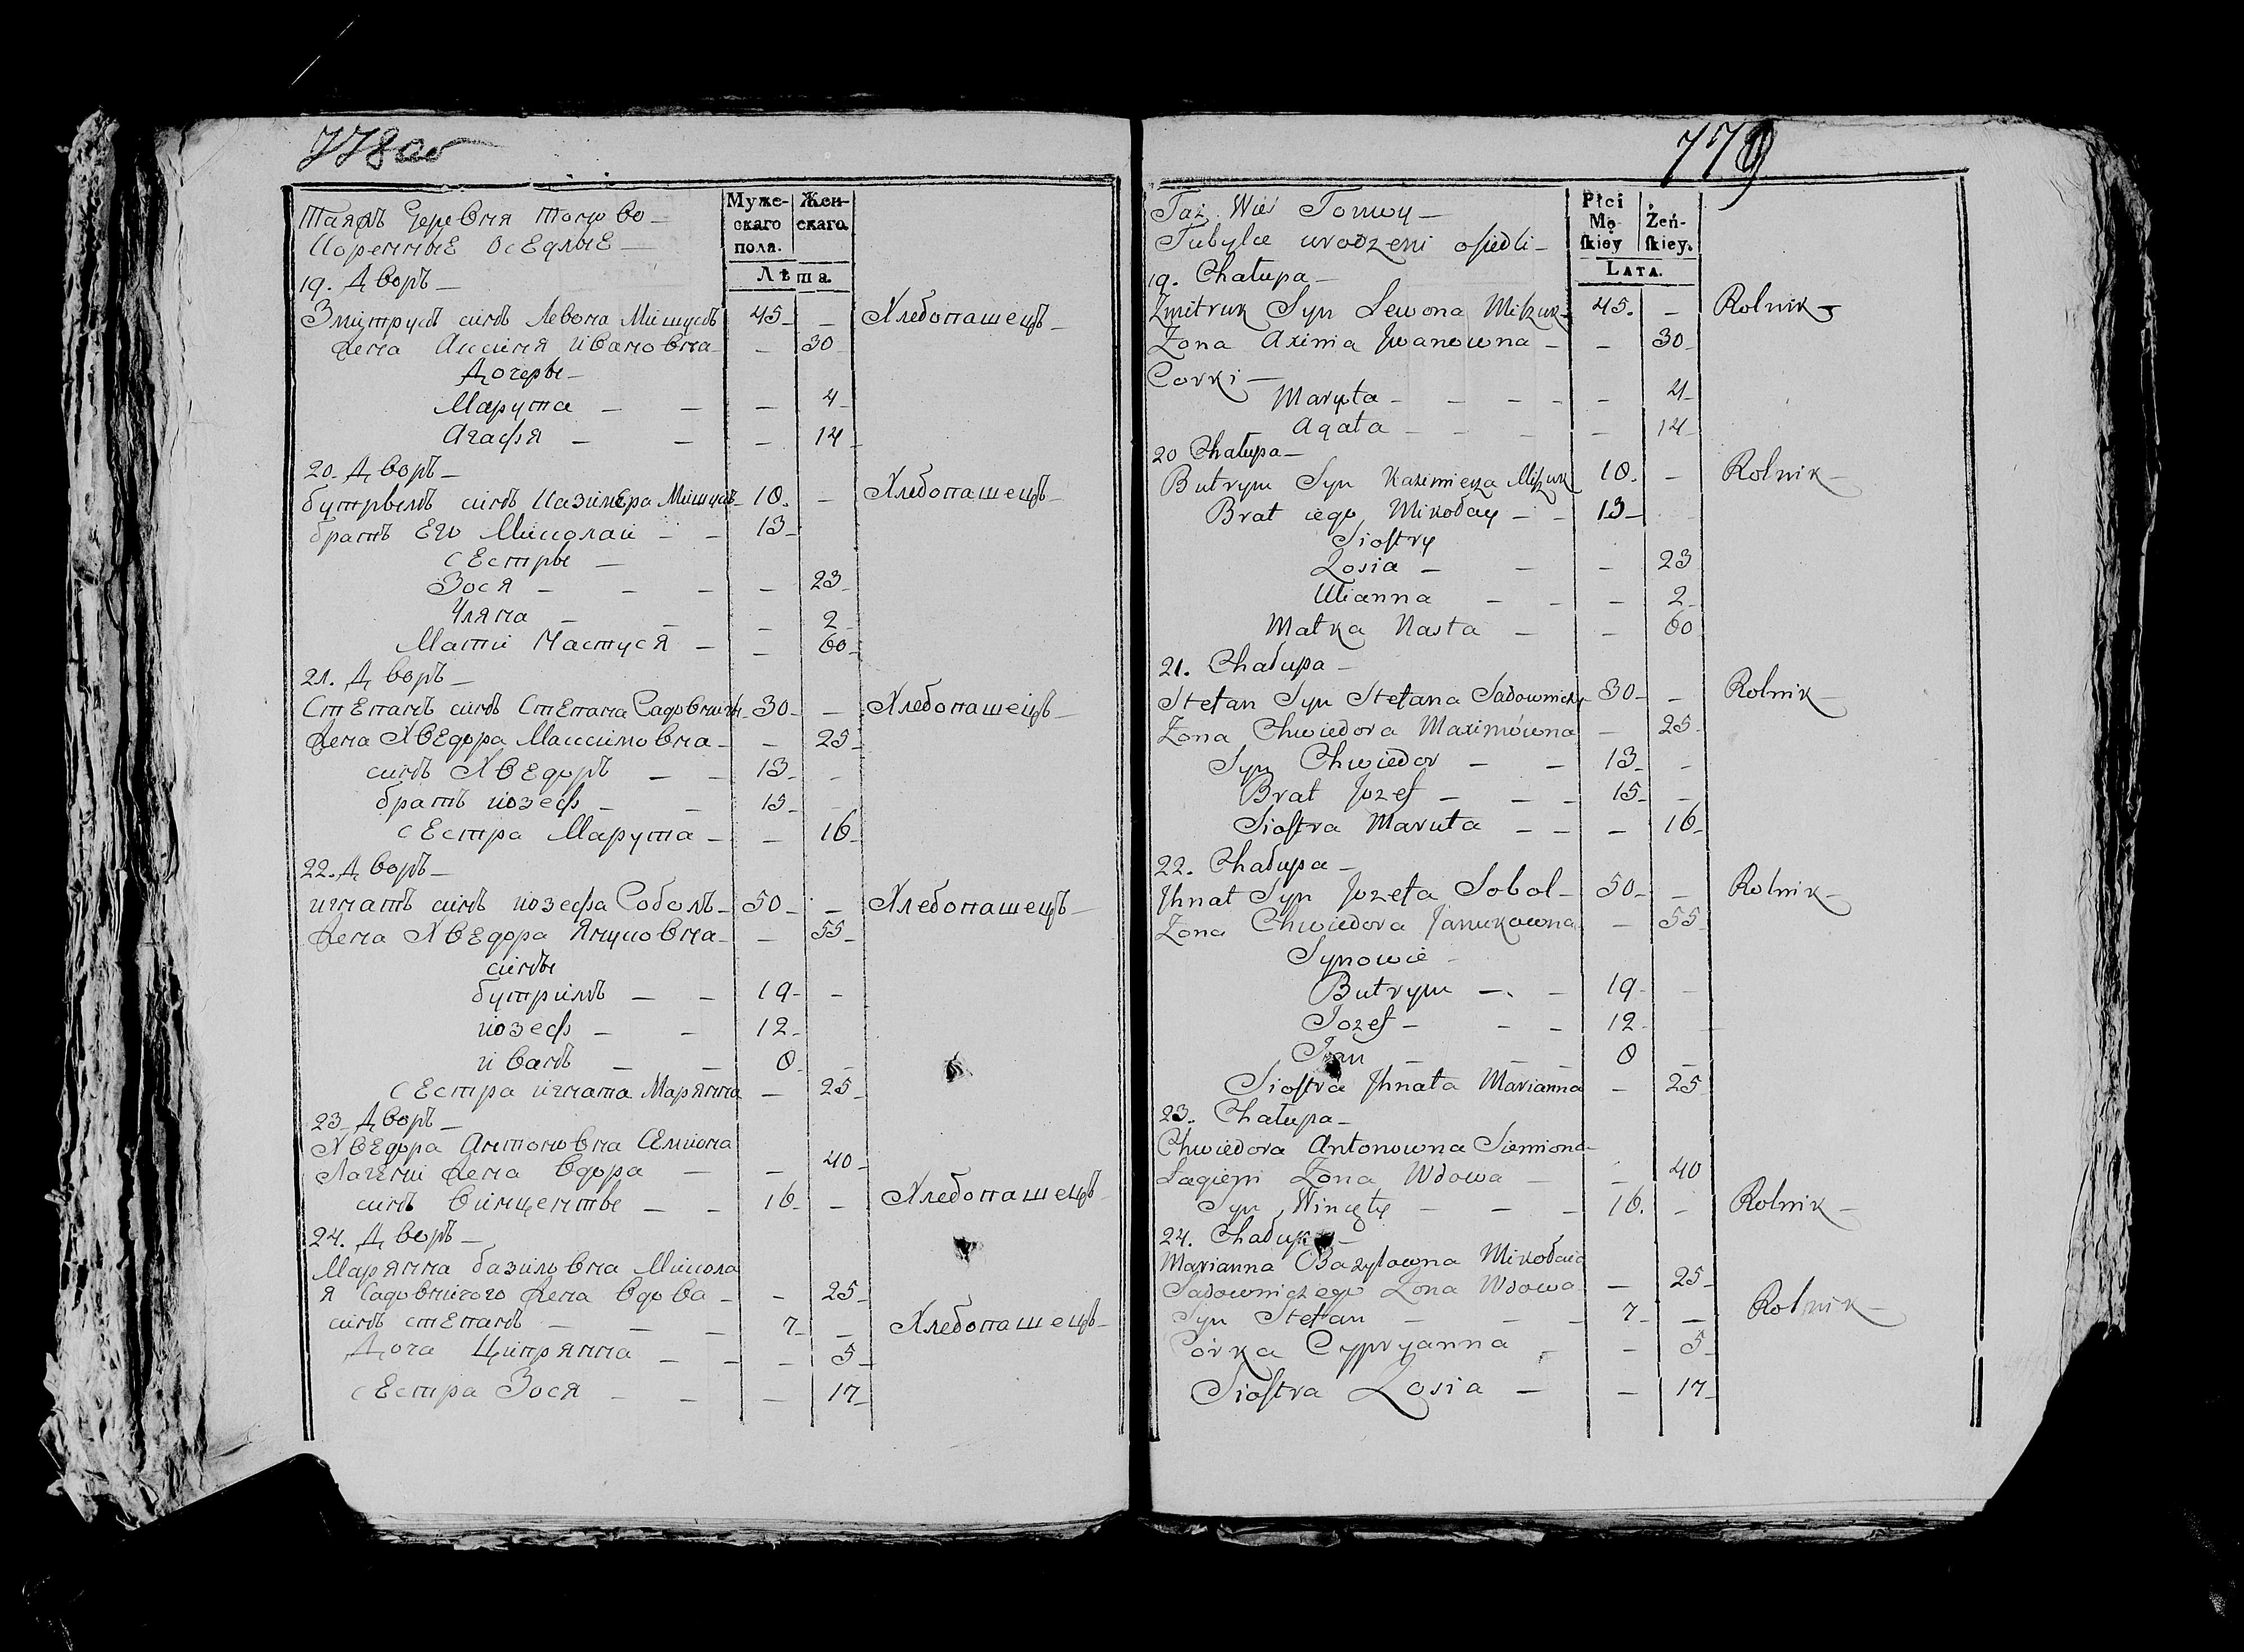 778 об
Таяжъ Черевня Тоново
Коренные осЕдлые
Муже-
скаго
пола.
Жен-
скаго.
Лѣта.
19. Дворъ
Змитрукъ синъ Левона Мишукъ 45 – Хлебопашецъ
жена Аксиня Ивановна – 30
Дочеры
Марута – 4
Агафя – 14
20. Дворъ
бутрымъ синъ КазимЕра Мишукъ 18. – Хлебопашецъ
братъ Его Миколаи 13
сЕстры
Зося – 23
Уляна – 2
Мати Настуся – 60
21. Дворъ
СтЕпанъ синъ СтЕпана Садовничи 30 – Хлебопашецъ
жена ХвЕдора Максимовна – 25
синъ ХвЕдоръ 13 –
братъ иозеф 15 –
сЕстра Марута – 16
22. Дворъ
игнатъ синъ иозефа Соболъ 50 – Хлебопашецъ
жена ХвЕдора Януковна – 55
сины
бутримъ 19 –
иозеф 12
иванъ 8 –
сЕстра игната Марянна – 25
23 Дворъ
ХвЕдора Антоновна СЕмиона
Лагени жена вдора – 40
синъ винценты 16 – Хлебопашецъ
24. Дворъ
Марянна базиловна Микола
я Садовничого жена вдова – 25
синъ стЕпанъ 7 – Хлебопашецъ
Доча Ципрянна – 5
сЕстра Зося – 17
779
Taż Wieś Tonwy
Tubylce urodzeni osiedli
Płci
Mę-
skiey
Żeń-
skiey.
LATA.
19. Chałupa
Zmitruk Syn Lewona Miszuk 45. – Rolnik
Zona Axinia Jwanowna – 30
Corki
Maryta – 4
Agata – 14
20 Chałupa
Butrym Syn Kazimierza Miszuk 18. – Rolnik
Brat iego Mikołay 13
Siostry
Zosia – 23
Ulianna – 2
Matka Nasta – 60
21. Chałupa
Stefan Syn Stefana Sadowniczy 30 – Rolnik
Zona Chwiedora Maximówna – 25
Syn Chwiedor 13 –
Brat Jozef 15 –
Siostra Maruta – 16
22. Chałupa
Jhnat Syn Jozefa Sobol 50 – Rolnik
Zona Chwiedora Janukowna – 55
Synowie
Butrym 19 –
Jozef 12
Jan 8 –
Siostra Jhnata Marianna – 25
23. Chałupa
Chwiedora Antonowna Siemiona
Łagieni Zona Wdowa – 40
Syn Winczty 16. – Rolnik
24. Chałupa
Marianna Bazylowna Mikołaia
Sadowniczego Zona Wdowa – 25
Syn Stefan 7 – Rolnik
Córka Cypryanna – 5
Siostra Zosia – 17